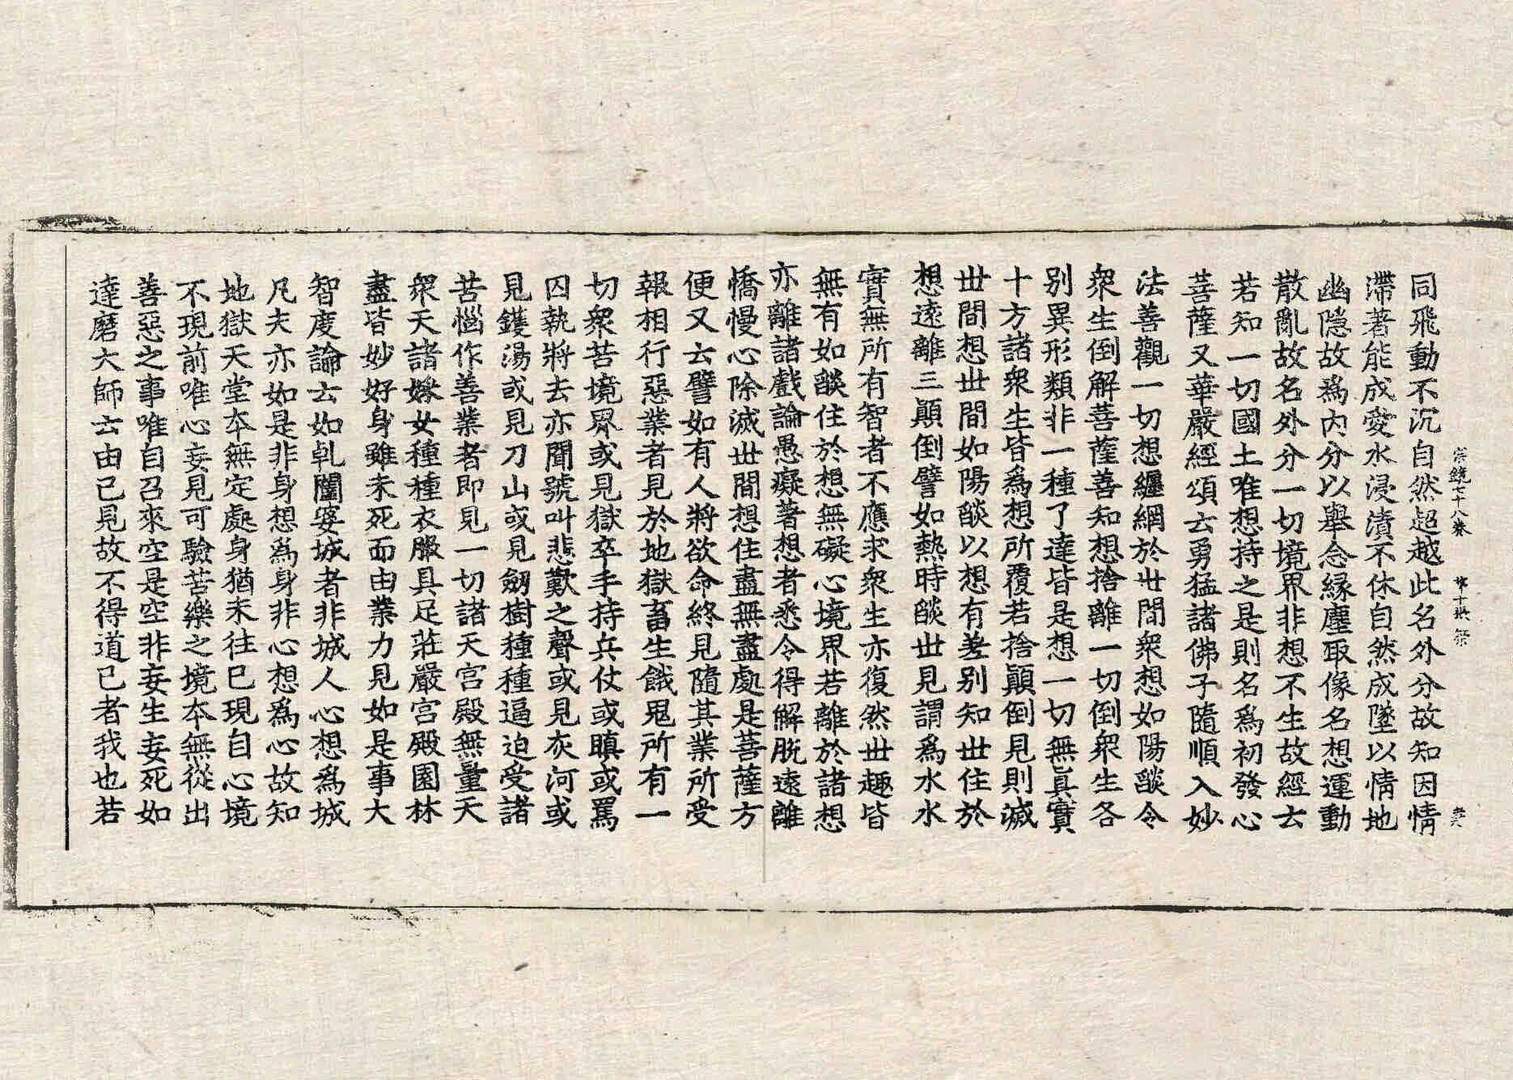 宗鏡七十八卷 第十張 祭
同飛動不沉自然超越此名外分故知因情
滯著能成愛水浸漬不休自然成墜以情地
幽隱故為內分以舉念緣塵取像名想運動
散亂故名外分一切境界非想不生故經云
若知一切國土唯想持之是則名為初發心
菩薩又華嚴經頌云勇猛諸佛子隨順入妙
法善觀一切想纏網於世間眾想如陽燄令
眾生倒解菩薩善知想捨離一切倒眾生各
別異形類非一種了達皆是想一切無真實
十方諸眾生皆為想所覆若捨顛倒見則滅
世間想世間如陽燄以想有差別知世住於
想遠離三顛倒譬如熱時燄世見謂為水水
實無所有智者不應求眾生亦復然世趣皆
無有如燄住於想無礙心境界若離於諸想
亦離諸戲論愚癡著想者悉令得解脫遠離
憍慢心除滅世間想住盡無盡處是菩薩方
便又云譬如有人將欲命終見隨其業所受
報相行惡業者見於地獄畜生餓鬼所有一
切眾苦境界或見獄卒手持兵仗或瞋或罵
囚執將去亦聞號叫悲歎之聲或見灰河或
見鑊湯或見刀山或見劒樹種種逼迫受諸
苦惱作善業者即見一切諸天宮殿無量天
眾天諸婇女種種衣服具足莊嚴宮殿園林
盡皆妙好身雖未死而由業力見如是事大
智度論云如乹闥婆城者非城人心想為城
凡夫亦如是非身想為身非心想為心故知
地獄天堂本無定處身猶未往已現自心境
不現前唯心妄見可驗苦樂之境本無從出
善惡之事唯自召來空是空非妄生妄死如
達磨大師云由已見故不得道已者我也若